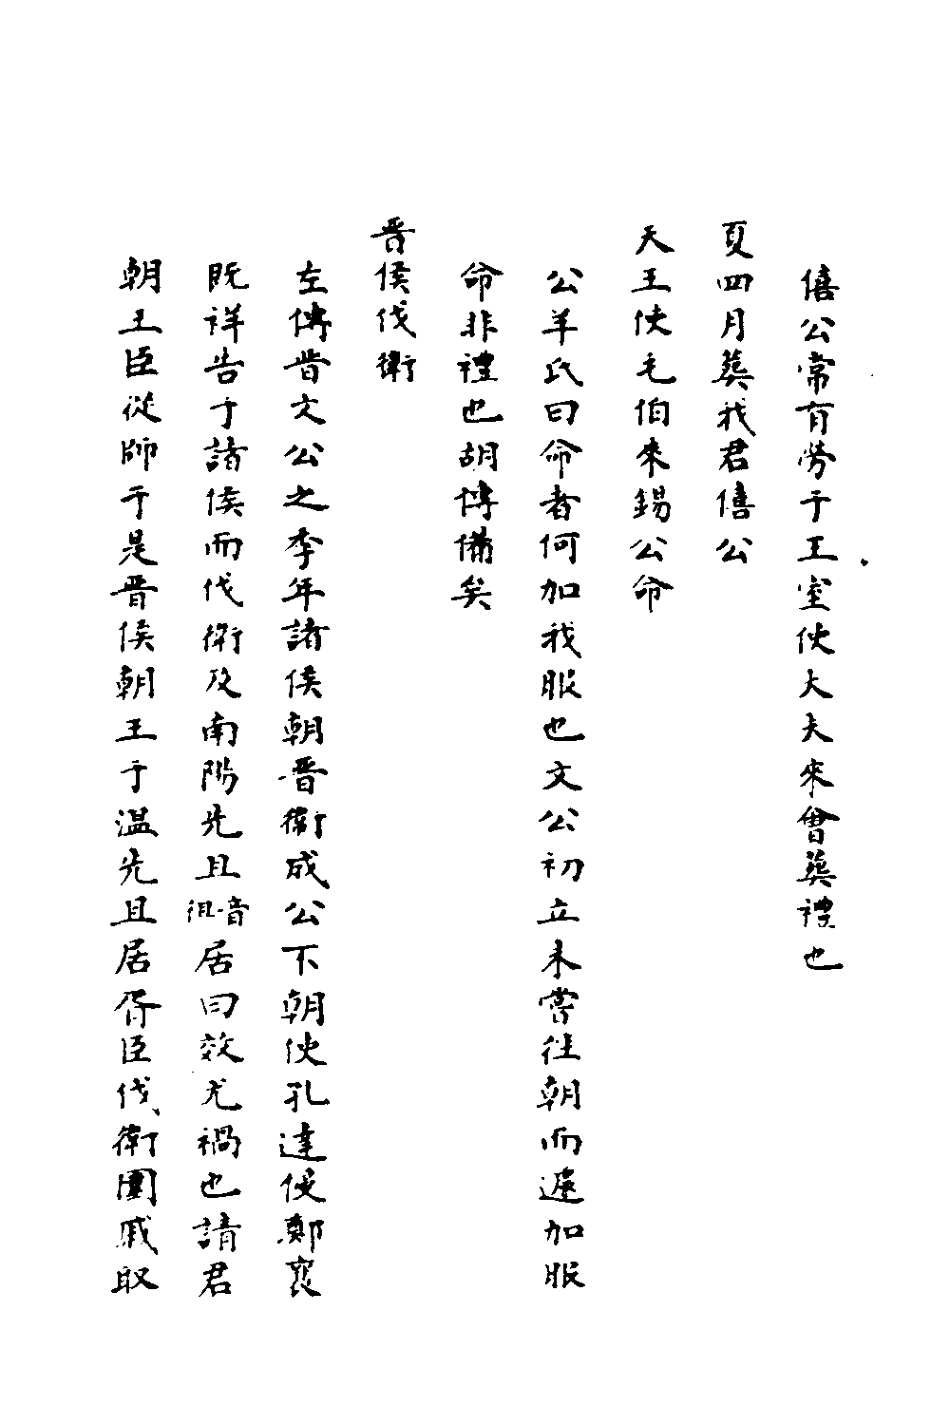 僖公常有勞于王室使大夫來會葬禮也
夏四月葬我君僖公
天王使毛伯來錫公命
公羊氏曰命者何加我服也文公初立未嘗往朝而遽加服
命非禮也胡傳備矣
晉侯伐衛
左傳晉文公之季年諸侯朝晉衛成公不朝使孔達侵鄭襄
既祥告于諸侯而伐衛及南陽先且音徂居曰效尤禍也請君
朝王臣從師于是晉侯朝王于溫先且居胥臣伐衛圍戚取